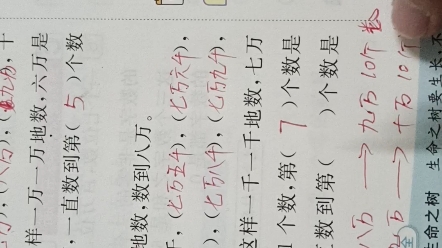 (八万), (九万), 十
样一万一万地数,六万是
,一直数到第( 5 )个数
地数,数到八万。
千, (七万五千), (七万六千),
), (七万八千), (七万九千),
这样一千一千地数,七万
1个数,第( 7 )个数是
数到第( )个数是
八万 → 九万 10个
万 → 十万 10个
命之树 生命之树要生长